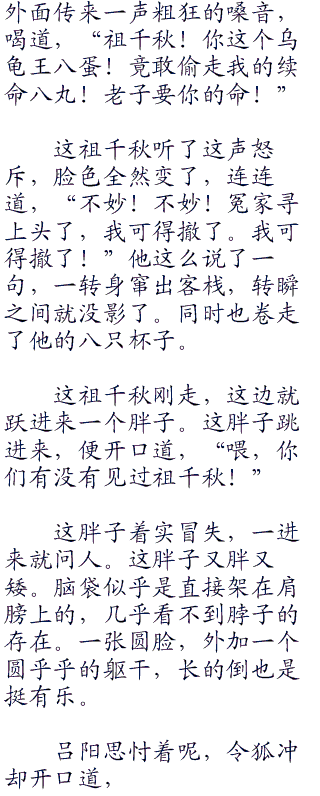 外面传来一声粗狂的嗓音，
喝道，“祖千秋！你这个乌
龟王八蛋！竟敢偷走我的续
命八丸！老子要你的命！”
这祖千秋听了这声怒
斥，脸色全然变了，连连
道，“不妙！不妙！冤家寻
上头了，我可得撤了。我可
得撤了！”他这么说了一
句，一转身窜出客栈，转瞬
之间就没影了。同时也卷走
了他的八只杯子。
这祖千秋刚走，这边就
跃进来一个胖子。这胖子跳
进来，便开口道，“喂，你
们有没有见过祖千秋！”
这胖子着实冒失，一进
来就问人。这胖子又胖又
矮。脑袋似乎是直接架在肩
膀上的，几乎看不到脖子的
存在。一张圆脸，外加一个
圆乎乎的躯干，长的倒也是
挺有乐。
吕阳思忖着呢，令狐冲
却开口道，